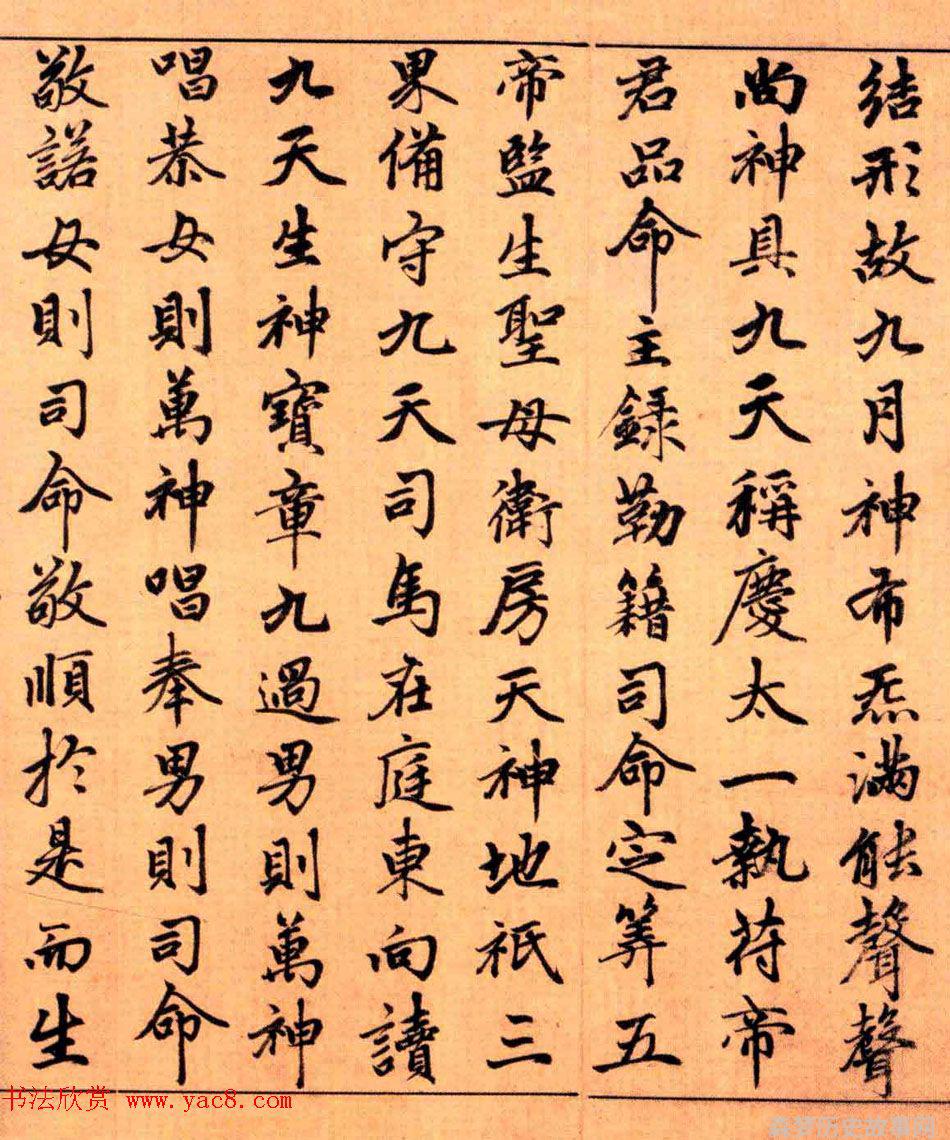 結形故九月神布炁滿能聲聲
尚神具九天稱慶太一執苻帝
君品命主錄勒籍司命定筭五
帝監生聖母衛房天神地祇三
果備守九天司馬在庭東向讀
九天生神寶章九過男則萬神
唱恭女則萬神唱奉男則司命
敬諾女則司命敬順於是而生
书法欣赏 www.yac8.com